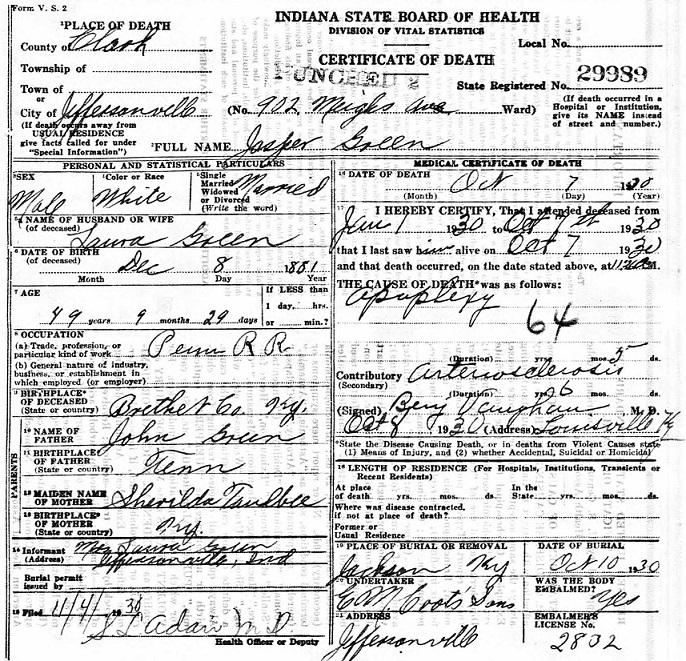 Form V. S. 2
INDIANA STATE BOARD OF HEALTH
DIVISION OF VITAL STATISTICS
CERTIFICATE OF DEATH
PUNCHED 2
Local No.
State Registered No. 29989
¹PLACE OF DEATH
County of Clark
Township of
Town of
or
City of Jeffersonville (No. 902 Meighs Ave Ward)
(If death occurred in a Hospital or Institution, give its NAME instead of street and number.)
(If death occurs away from USUAL RESIDENCE give facts called for under "Special Information")
²FULL NAME Jasper Green
PERSONAL AND STATISTICAL PARTICULARS
³SEX Male
⁴Color or Race White
⁵Single Married Widowed or Divorced (Write the word) Married
NAME OF HUSBAND OR WIFE (of deceased) Laura Green
⁶DATE OF BIRTH (of deceased) Dec 8 1881
Month Day Year
⁷AGE 49 years 9 months 29 days
If LESS than 1 day, hrs. or min.?
⁸OCCUPATION
(a) Trade, profession, or particular kind of work Penn R R
(b) General nature of industry, business, or establishment in which employed (or employer)
⁹BIRTHPLACE OF DECEASED (State or country) Brethet Co. Ky.
PARENTS
¹⁰NAME OF FATHER John Green
¹¹BIRTHPLACE OF FATHER (State or country) Tenn
¹²MAIDEN NAME OF MOTHER Sherilda Taulbee
¹³BIRTHPLACE OF MOTHER (State or country) Ky.
¹⁴Informant Mrs Laura Green
(Address) Jeffersonville, Ind
Burial permit issued by
¹⁵Filed 11/4/1930
S L Adair M D
Health Officer or Deputy
MEDICAL CERTIFICATE OF DEATH
¹⁶DATE OF DEATH Oct 7 1930
(Month) (Day) (Year)
¹⁷I HEREBY CERTIFY, That I attended deceased from
Jan 1 1930 to Oct 7 1930
that I last saw him alive on Oct 7 1930
and that death occurred, on the date stated above, at M.
THE CAUSE OF DEATH was as follows:
Apoplexy
64
(Duration) yrs. mos. 5 ds.
Contributory (Secondary) Arteriosclerosis
(Duration) yrs. 6 mos. ds.
(Signed) Benj Vaughan M. D.
Oct 8 1930 (Address) Louisville Ky
*State the Disease Causing Death, or in deaths from Violent Causes state (1) Means of Injury, and (2) whether Accidental, Suicidal or Homicidal
¹⁸LENGTH OF RESIDENCE (For Hospitals, Institutions, Transients or Recent Residents)
At place of death yrs. mos. ds. In the State yrs. mos. ds.
Where was disease contracted, if not at place of death?
Former or Usual Residence
¹⁹PLACE OF BURIAL OR REMOVAL Jackson Ky
DATE OF BURIAL Oct 10 1930
²⁰UNDERTAKER E. M. Coots Sons
WAS THE BODY EMBALMED? Yes
²¹ADDRESS Jeffersonville
EMBALMER'S LICENSE No. 2802